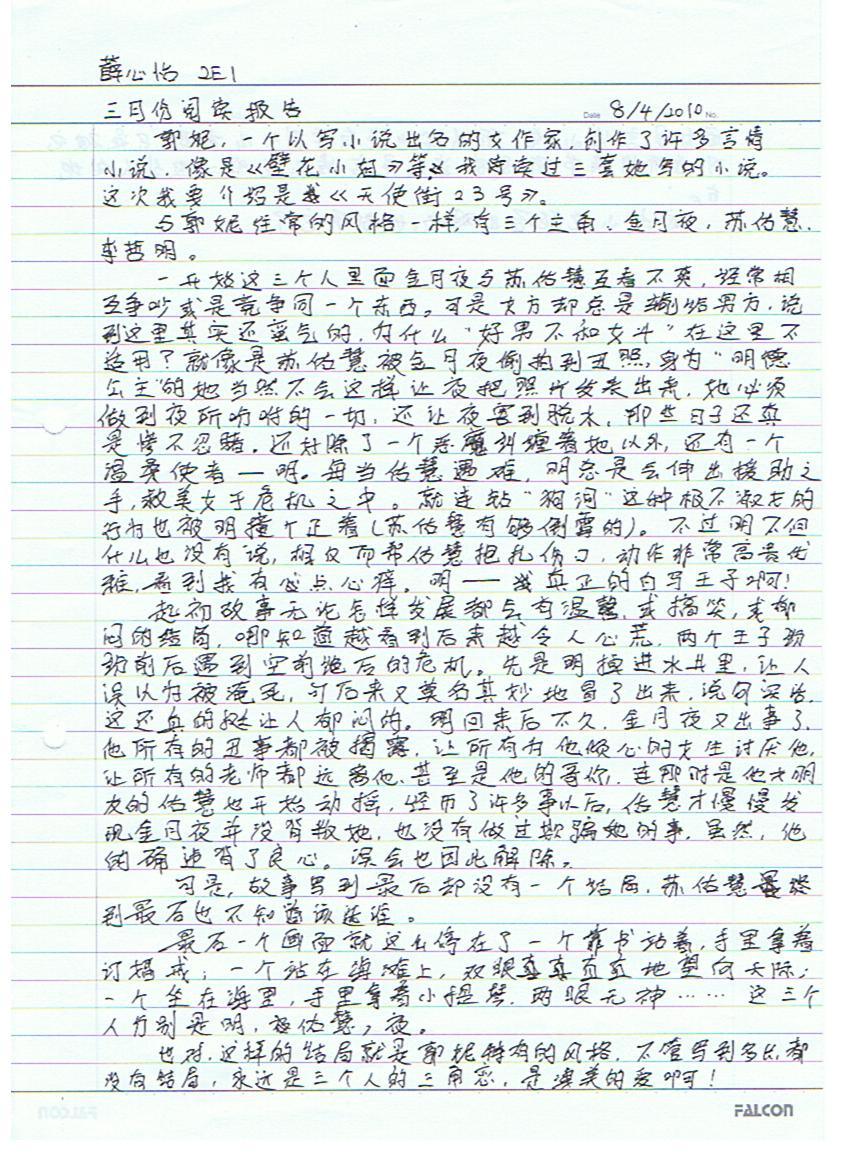 薛心怡 2E1
三月份阅读报告 Date 8/4/2010 No.
郭妮，一个以写小说出名的女作家，创作了许多言情
小说，像是《壁花小姐》等，我时读过三套她写的小说。
这次我要介绍是《天使街23号》。
与郭妮往常的风格一样，有三个主角、金月夜，苏佑慧，
李哲明。
一开始这三个人里面金月夜与苏佑慧互看不爽，经常相
互争吵或是竞争同一个东西。可是女方却总是输给男方，说
到这里其实还蛮气的，为什么“好男不和女斗”在这里不
适用？就像是苏佑慧被金月夜偷拍到丑照，身为“明德
公主”的她当然不会这样让夜把照片发表出来，她必须
做到夜所吩咐的一切，还让夜害到脱水，那些日子还真
是惨不忍睹。还对除了一个恶魔纠缠着她以外，还有一个
温柔使者——明。每当佑慧遇难，明总是会伸出援助之
手，救美女于危机之中。就连钻“狗洞”这种极不淑女的
行为也被明撞个正着(苏佑慧有够倒霉的)。不过明不但
什么也没有说，相反而帮佑慧把扎伤口，动作非常高贵优
雅，看到我有些点心痒。明——我真正的白马王子啊！
起初故事无论怎样发展都会有温馨，或搞笑，或郁
闷的结局，哪知道越看到后来越令人心荒，两个王子纷
纷前后遇到空前绝后的危机。先是明掉进水井里，让人
误以为被淹死，可后来又莫名其妙地冒了出来，说句实话，
这还真的挺让人郁闷的。明回来后不久，金月夜又出事了，
他所有的丑事都被揭露，让所有为他倾心的女生讨厌他，
让所有的老师都远离他、甚至是他的哥们，连那时是他女朋
友的佑慧也开始动摇，经历了许多事以后，佑慧才慢慢发
现金月夜并没背叛她，也没有做过欺骗她的事，虽然，他
的确违背了良心。误会也因此解除。
可是，故事写到最后却没有一个结局，苏佑慧
到最后也不知道该选谁。
最后一个画面就这么停在了一个靠书站着，手里拿着
订婚戒；一个站在海滩上，双眼直直地望向天际；
一个坐在海里，手里拿着小提琴，两眼无神……这三个
人分别是明，佑慧，夜。
也对，这样的结局就是郭妮特有的风格，不管写到多长，都
没有结局，永远是三个人的三角恋，是凄美的爱啊！
FALCON